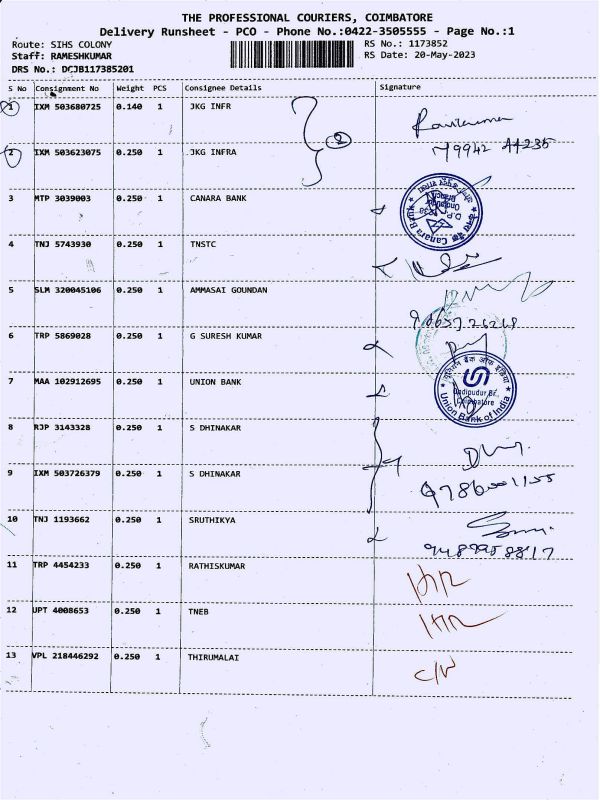 THE PROFESSIONAL COURIERS, COIMBATORE
Delivery Runsheet - PCO - Phone No.:0422-3505555 - Page No.:1
Route: SIHS COLONY RS No.: 1173852
Staff: RAMESHKUMAR RS Date: 20-May-2023
DRS No.: DCJB117385201
S No Consignment No Weight PCS Consignee Details Signature
1 IXM 503680725 0.140 1 JKG INFR
2
2 IXM 503623075 0.250 1 JKG INFRA
3 MTP 3039003 0.250 1 CANARA BANK
Canara Bank
4 TNJ 5743930 0.250 1 TNSTC
5 SLM 320045106 0.250 1 AMMASAI GOUNDAN
6 TRP 5869028 0.250 1 G SURESH KUMAR
7 MAA 102912695 0.250 1 UNION BANK
यूनियन बैंक ऑफ इंडिया
Coimbatore
Union Bank of India
8 RJP 3143328 0.250 1 S DHINAKAR
9 IXM 503726379 0.250 1 S DHINAKAR
10 TNJ 1193662 0.250 1 SRUTHIKYA
11 TRP 4454233 0.250 1 RATHISKUMAR
12 UPT 4008653 0.250 1 TNEB
13 VPL 218446292 0.250 1 THIRUMALAI